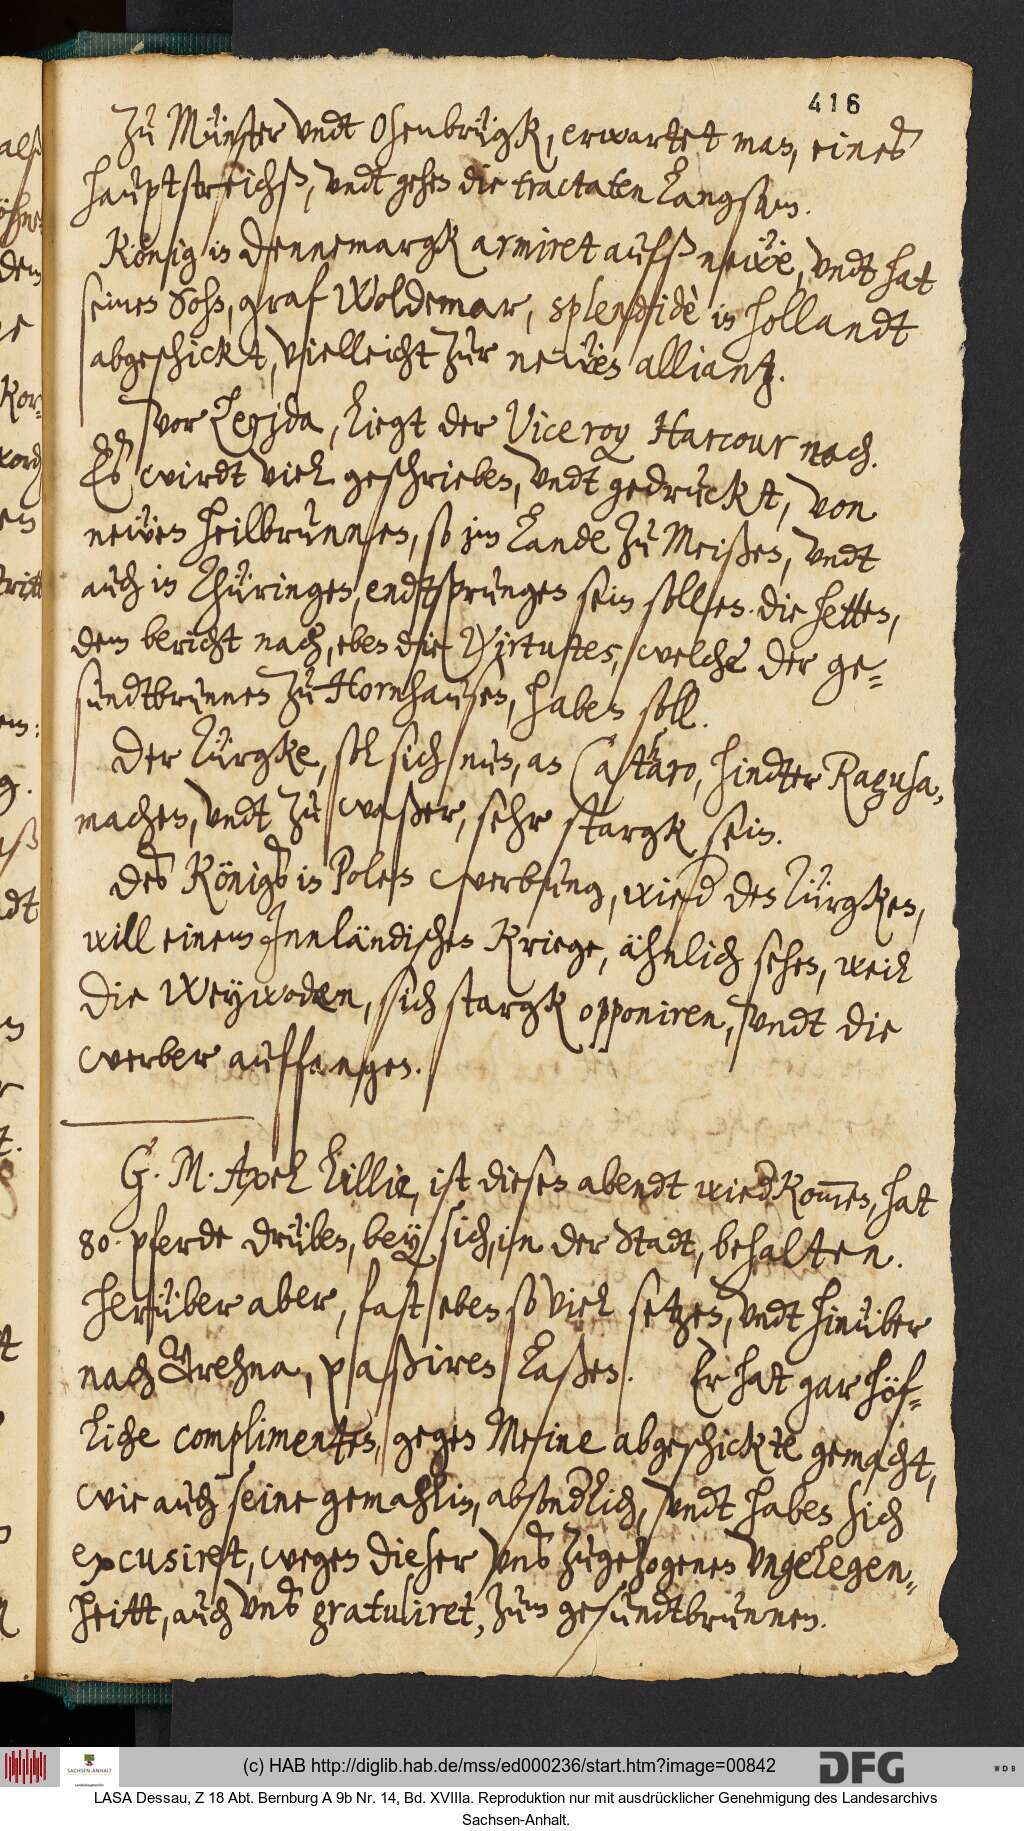 416
Zu Münster vndt Osenbrügk, erwartet man, eines
hauptstreichß, vndt gehen die tractaten langsam.
König in Dennemargk armiret aufß neẅe, vndt hat
seinen Sohn, graf Woldemar, splendidè in Hollandt
abgeschickt, vielleicht zur neẅen alliantz.
Vor Lerida, liegt der Viceroy Harcour noch.
Es wirdt viel geschrieben, vndt gedruckt, von
neẅen heilbrunnen, so im Lande zu Meißen, vndt
auch in Thüringen, endtsprungen sein sollen. die hetten,
dem bericht nach, eben die Virtutes, welche der ge¬
sundtbrunnen zu Hornhausen, haben soll.
Der Türgke, sol sich nun, an Cattaro, hindter Ragusa,
machen, vndt zu waßer, sehr stargk sein.
Des Königs in Polen werbung, wied den Türgken,
will einem Innländischen Kriege, ähnlich sehen, weil
die Weywoden, sich stargk opponiren, vndt die
werber auffangen.
G. M. Axel Lillie, ist diesen abendt wied kom̅en, hat
80. pferde drüben, bey sich, in der Stadt, behalten.
herüber aber, fast eben so viel setzen, vndt hinüber
nach Grehna, paßiren laßen. Er hat gar höf¬
liche complimenten, gegen Meine abgeschickte gemacht,
wie auch seine gemahlin, absondlich, vndt haben sich
excusiret, wegen dieser vns zugezogenen vngelegen¬
heitt, auch vns gratuliret, zum gesundtbrunnen.
(c) HAB http://diglib.hab.de/mss/ed000236/start.htm?image=00842
SACHSEN-ANHALT
DFG
WDB
LASA Dessau, Z 18 Abt. Bernburg A 9b Nr. 14, Bd. XVIIIa. Reproduktion nur mit ausdrücklicher Genehmigung des Landesarchivs
Sachsen-Anhalt.